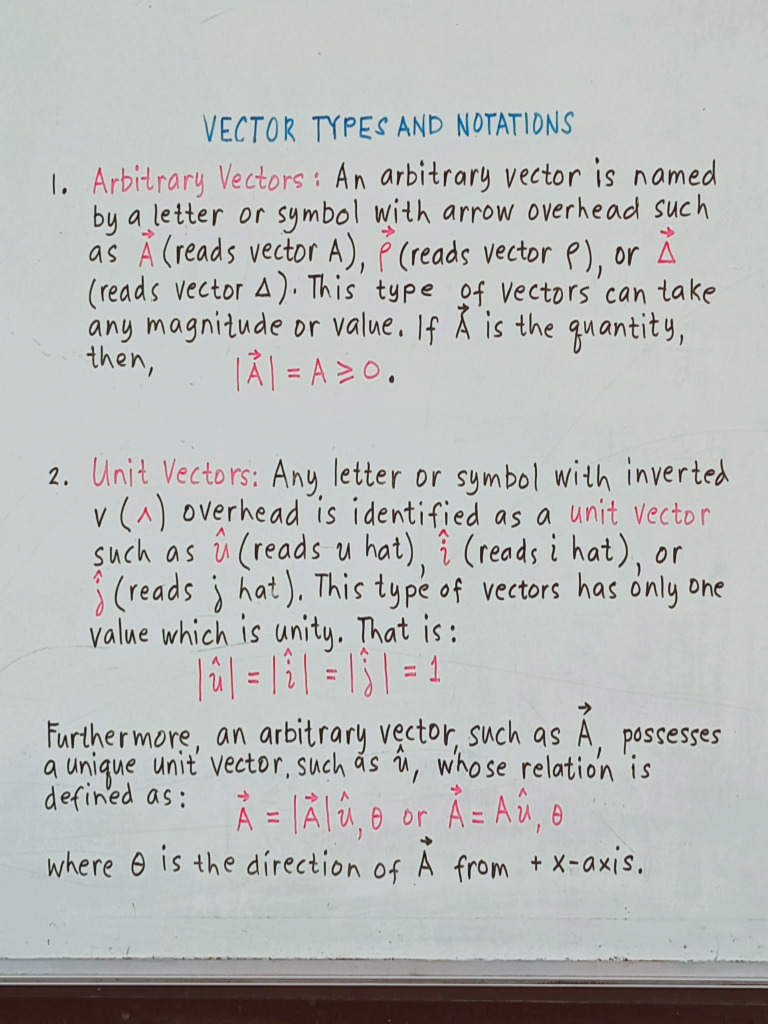 VECTOR TYPES AND NOTATIONS
1. Arbitrary Vectors: An arbitrary vector is named
by a letter or symbol with arrow overhead such
as A⃗ (reads vector A), ρ⃗ (reads vector ρ), or Δ⃗
(reads vector Δ). This type of vectors can take
any magnitude or value. If A⃗ is the quantity,
then, |A⃗| = A ⩾ 0.
2. Unit Vectors: Any letter or symbol with inverted
v (^) overhead is identified as a unit vector
such as û (reads u hat), î (reads i hat), or
ĵ (reads j hat). This type of vectors has only one
value which is unity. That is:
|û| = |î| = |ĵ| = 1
Furthermore, an arbitrary vector, such as A⃗, possesses
a unique unit vector, such as û, whose relation is
defined as:
A⃗ = |A⃗| û, θ or A⃗ = A û, θ
where θ is the direction of A⃗ from + x-axis.